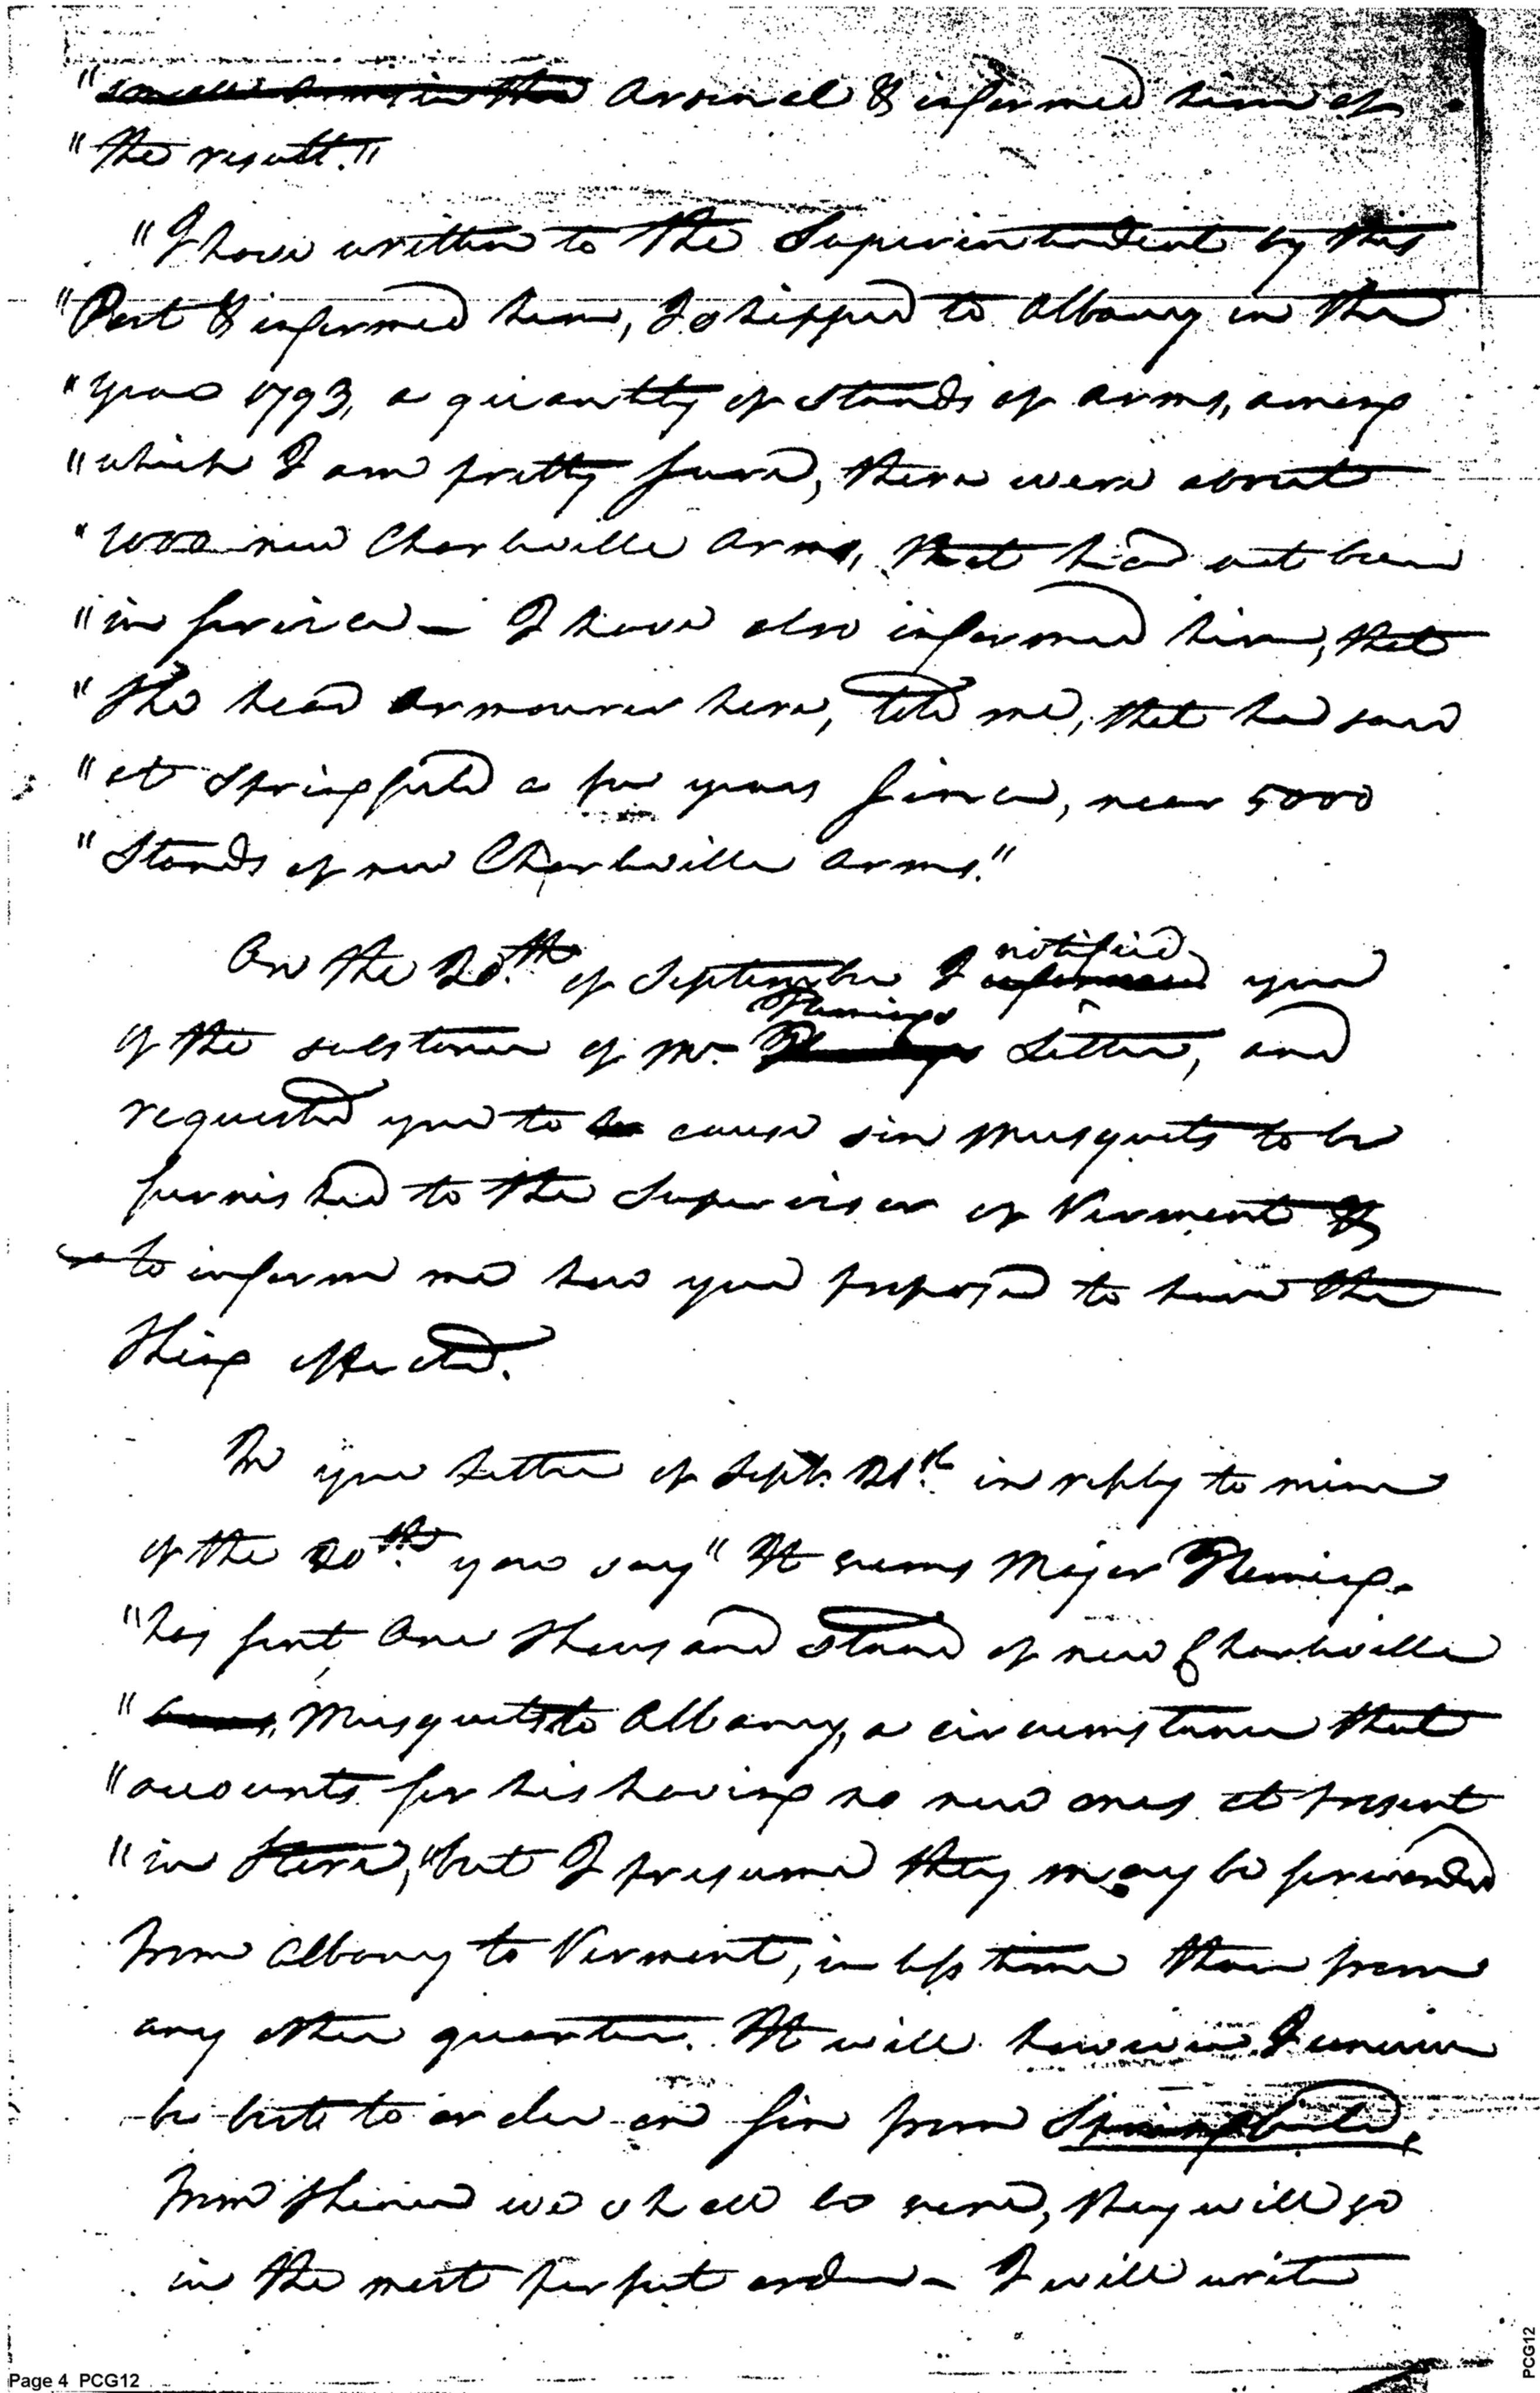 " ~~small arms in the~~ Arsenal & informed him of
" the result."
" I have written to the Superintendent by this
" Post & informed him, I shipped to Albany in the
" year 1793, a quantity of stands of arms, among
" which I am pretty sure, there were about
" 1000 new Charleville Arms, that had not been
" in service – I have also informed him, that
" the head armourer here, told me, that he saw
" at Springfield a few years since, near 5000
" Stands of new Charleville Arms."
On the 20th. of September I notified ~~informed~~ you
of the substance of Mr. Flemings Letter, and
requested you to cause six musquets to be
furnished to the Supervisor of Vermont &
to inform me how you proposed to have the
thing effected.
In your Letter of Sept. 21st. in reply to mine
of the 20th. you say " It seems Major Fleming
" has sent One thousand stand of new Charleville
" ~~Arms,~~ Musquets to Albany, a circumstance that
" accounts for his having no new ones at present
" in Store," but I presume they may be forwarded
from Albany to Vermont, in less time than from
any other quarter. It will however I conceive
be best to order on six from Springfield,
from thence we shall be sure, they will go
in the most perfect order – I will write
Page 4 PCG12
PCG12